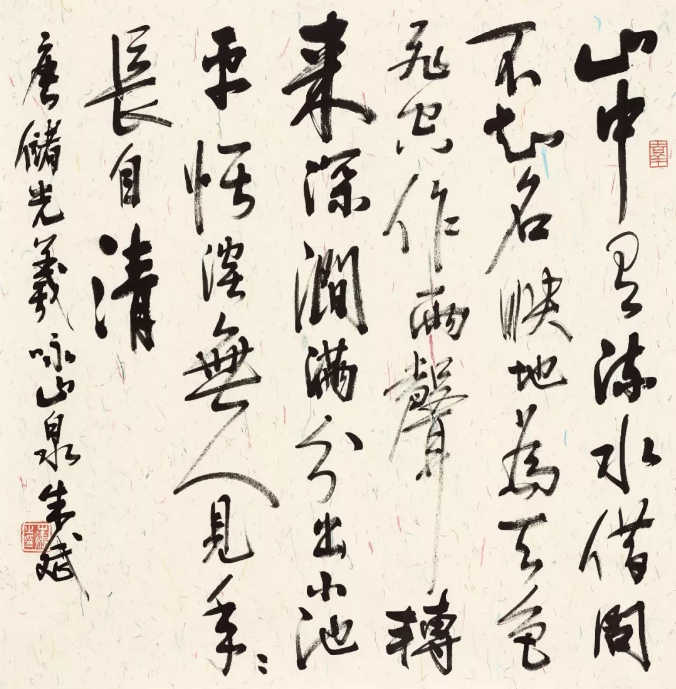 山中有流水借問
不知名映地為天色
飛空作雨聲轉
来深澗滿分出小池
平恬淡無人見年〻
長自清
唐儲光羲咏山泉朱斌